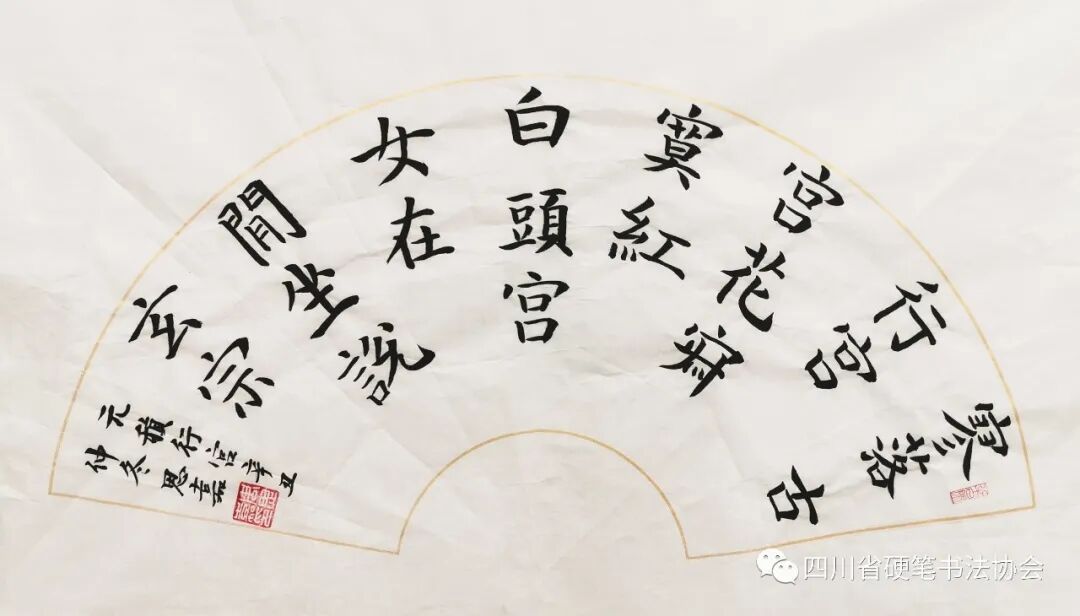 寥落古
行宫
宫花寂
寞紅
白頭宫
女在
閒坐説
玄宗
元稹行宫辛丑
仲冬思
四川省硬笔书法协会